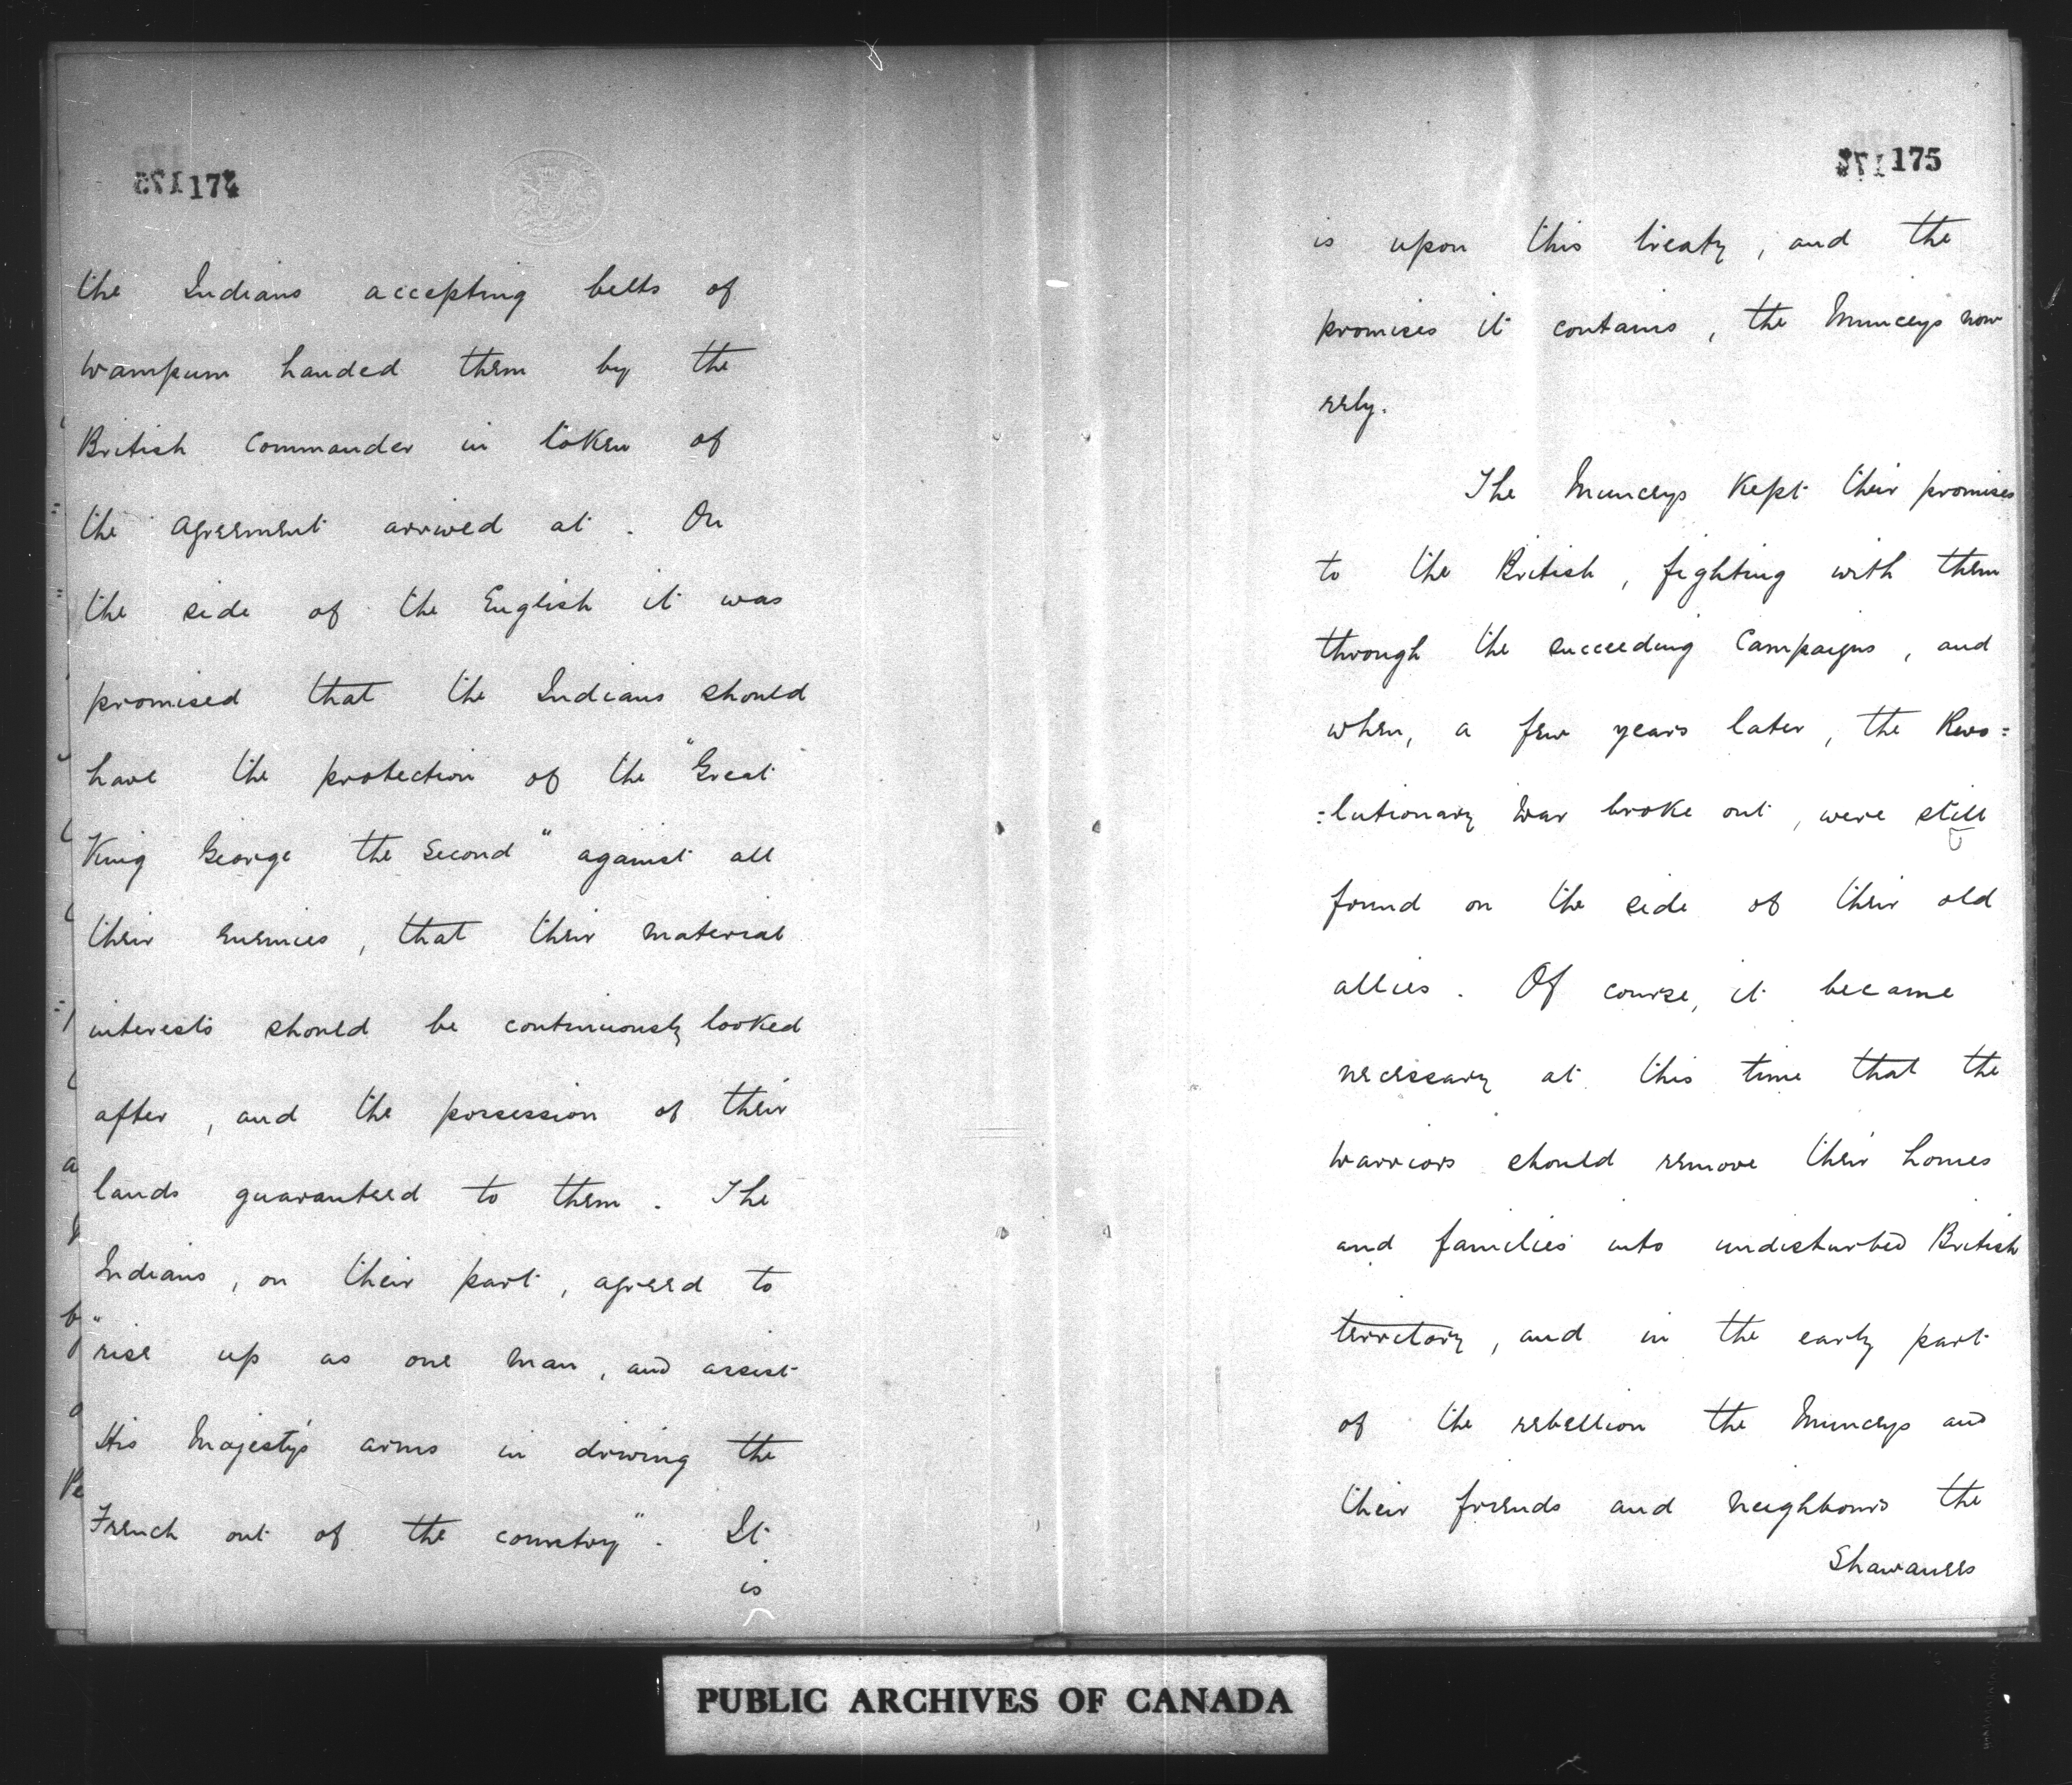 174
the Indians accepting belts of
wampum handed them by the
British Commander in token of
the agreement arrived at. On
the side of the English it was
promised that the Indians should
have the protection of the "Great
King George the Second" against all
their enemies, that their material
interests should be continuously looked
after, and the possession of their
lands guaranteed to them. The
Indians, on their part, agreed to
"rise up as one man, and assist
His Majesty's arms in driving the
French out of the country". It
is
175
is upon this treaty, and the
promises it contains, the Munceys now
rely.
The Munceys kept their promises
to the British, fighting with them
through the succeeding Campaigns, and
when, a few years later, the Revo=
=lutionary War broke out, were still
found on the side of their old
allies. Of course, it became
necessary at this time that the
warriors should remove their homes
and families into undisturbed British
territory, and in the early part
of the rebellion the Munceys and
their friends and neighbours the
Shawanees
PUBLIC ARCHIVES OF CANADA